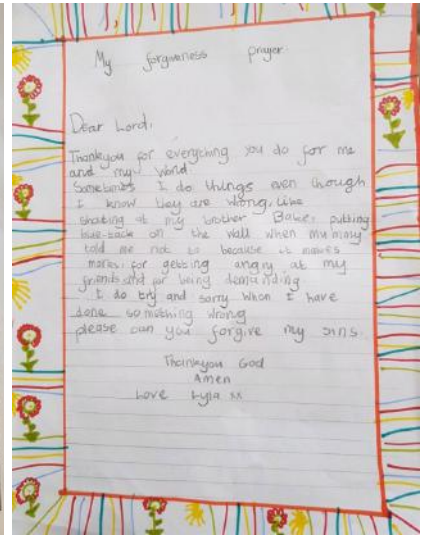 My forgiveness prayer
Dear Lord,
Thankyou for everything you do for me
and my world.
Sometimes I do things even though
I know they are wrong, like
shouting at my brother putting
blue-tack on the wall when my mumy
told me not to because it makes
marks, for getting angry at my
friends and for being demanding
I do try and sorry when I have
done something wrong
please can you forgive my sins
Thankyou God
Amen
Love Lyla M